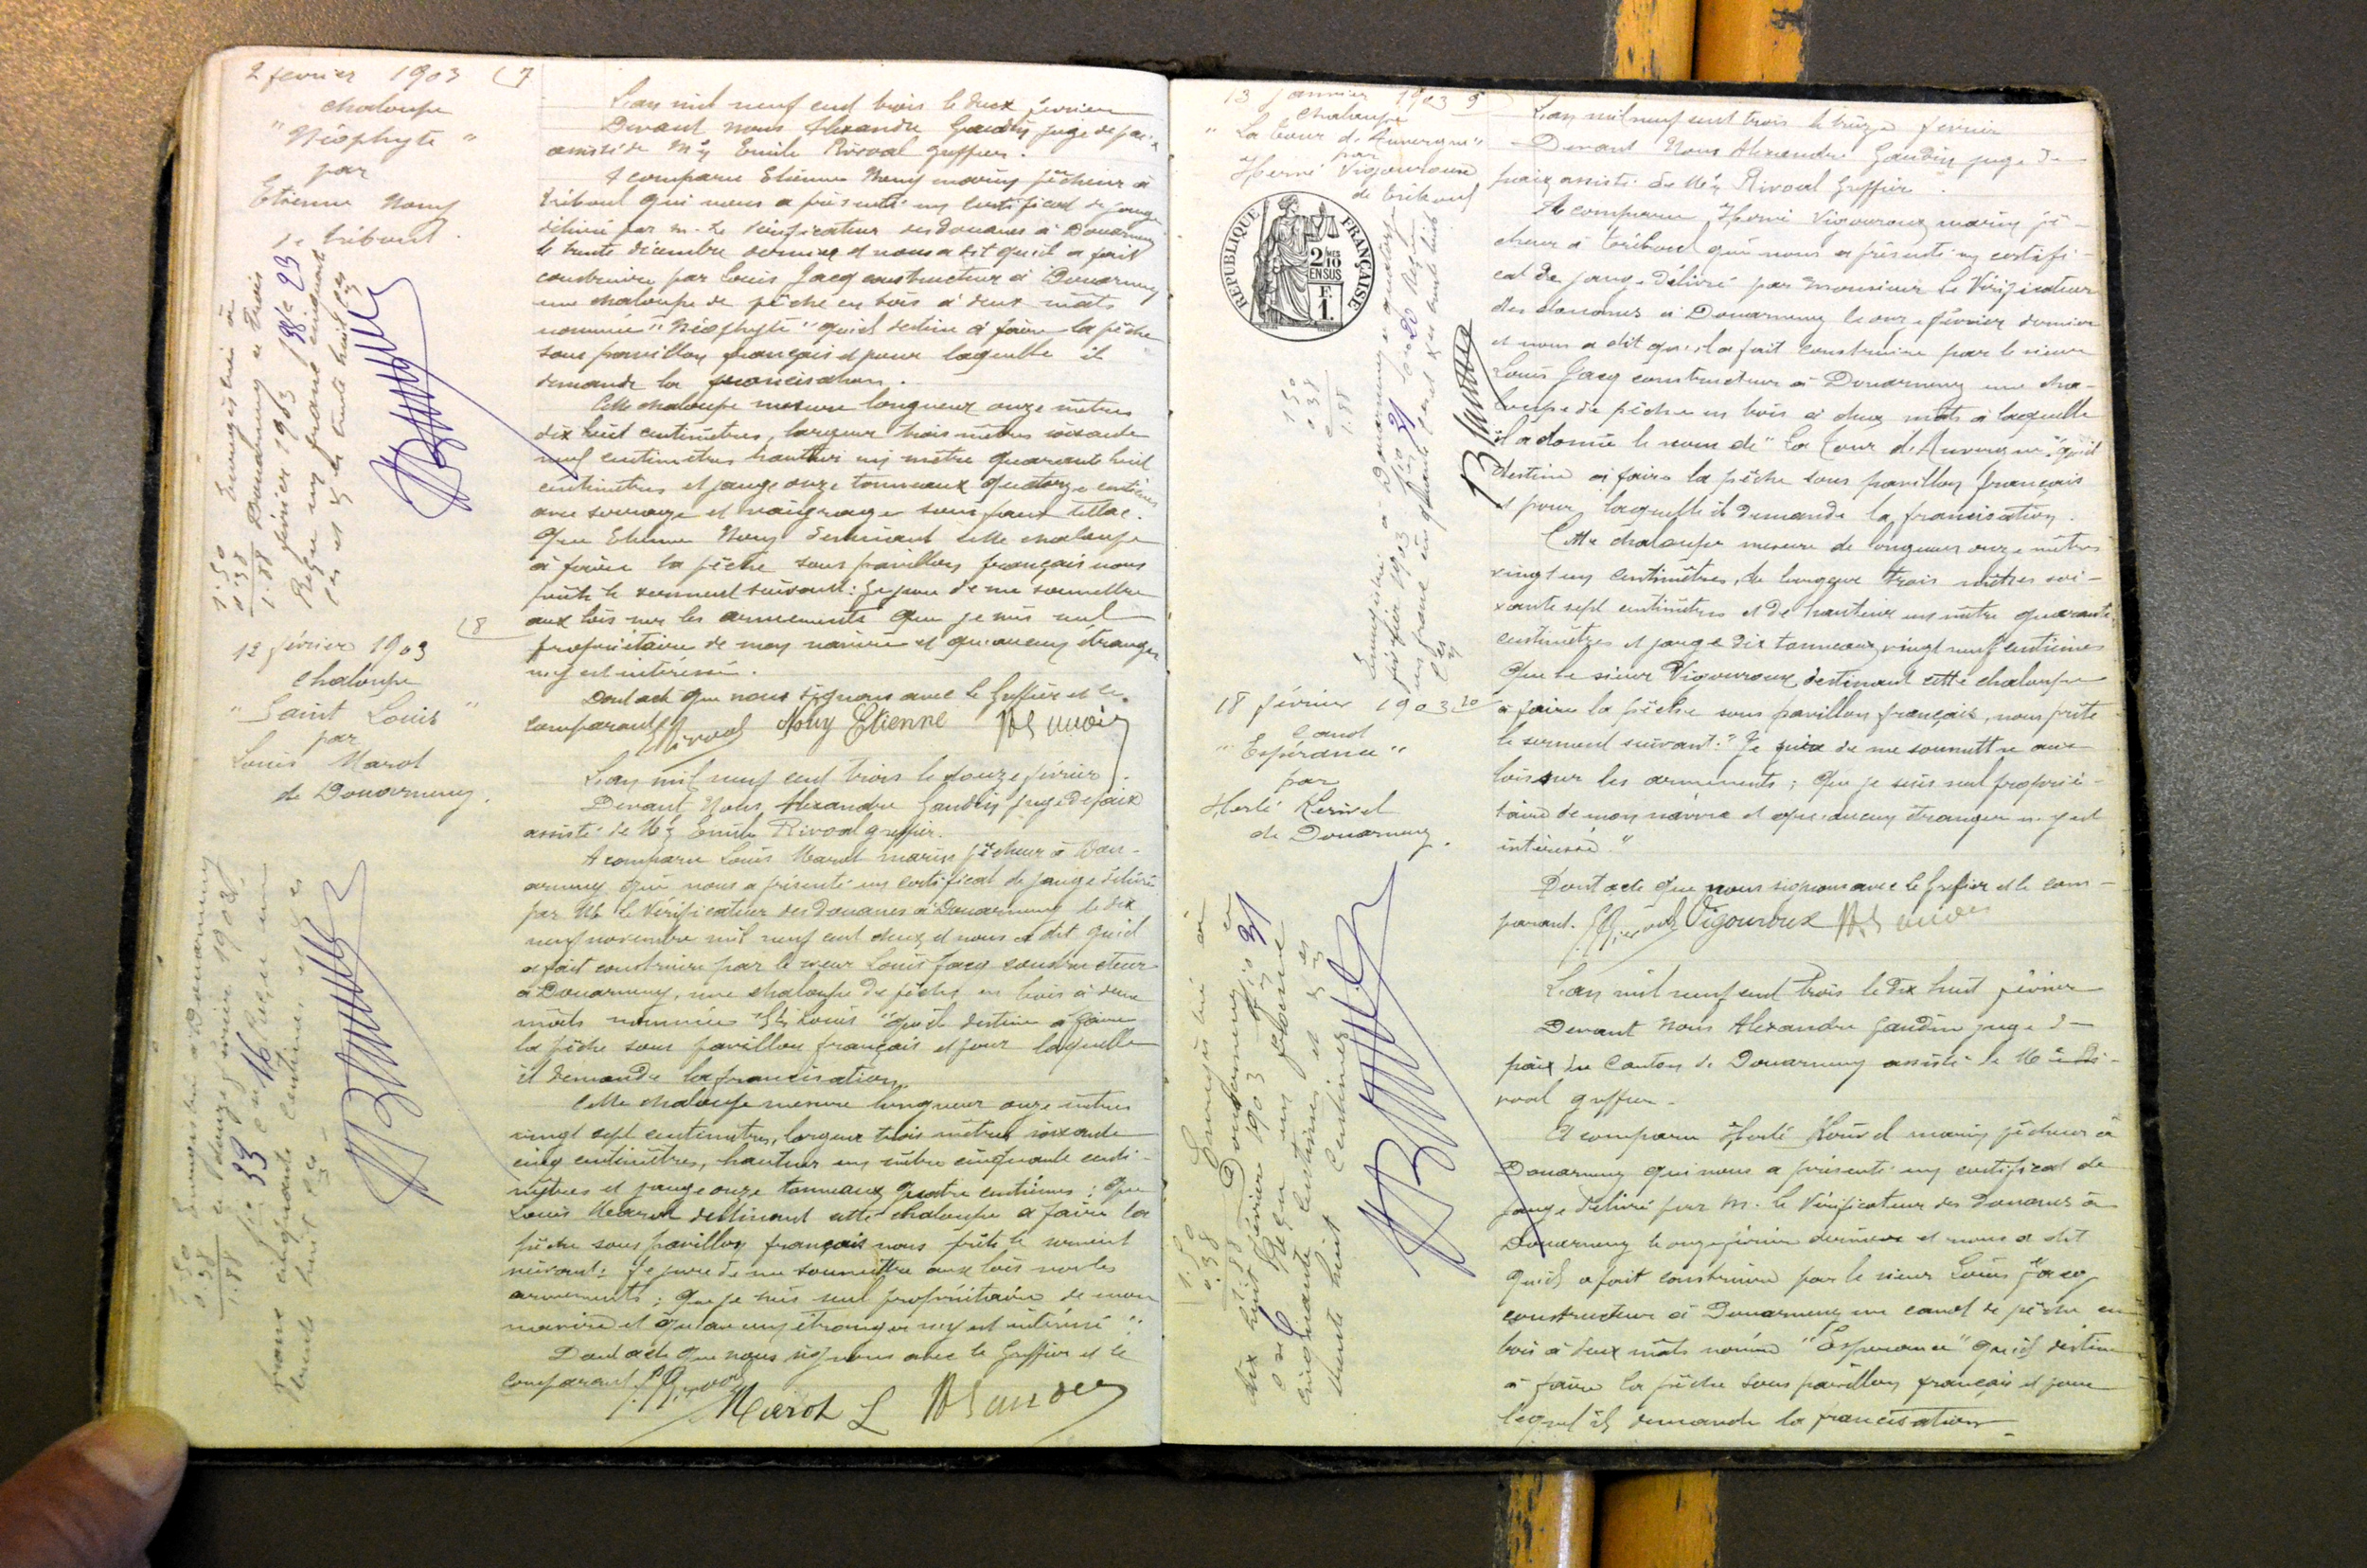 2 février 1903 (7
chaloupe
"Néophyte"
par
Etienne Nouy
de tréboul.
Enregistré à
Douarnenez le trois
février 1903 f° 38 c 23
Reçu un franc cinquante
ces et Xes trente huit ces
1.50
0.38
1.88
L'an mil neuf cent trois le deux février
Devant nous Alexandre Gaudin juge de paix
assisté de Me Emile Rivoal greffier.
A comparu Etienne Nouy marin pêcheur à
tréboul qui nous a présenté un certificat de jauge
délivré par M. le Vérificateur des douanes à Douarnenez
le trente décembre dernier et nous a dit qu'il a fait
construire par Louis Jacq constructeur à Douarnenez
une chaloupe de pêche en bois à deux mats
nommée "Néophyte" qu'il destine à faire la pêche
sous pavillon français et pour laquelle il
demande la francisation.
Cette chaloupe mesure longueur onze mètres
dix huit centimètres, largeur trois mètres soixante
neuf centimètres hauteur un mètre quarante huit
centimètres et jauge onze tonneaux quatorze centièmes
avec serrage et vaigrage sans faux tillac.
Que Etienne Nouy destinant cette chaloupe
à faire la pêche sous pavillon français nous
prête le serment suivant: Je jure de me soumettre
aux lois sur les armements que je suis seul
propriétaire de mon navire et qu'aucun étranger
n'y est intéressé.
Dont acte que nous signons avec le Greffier et le
comparant. Rivoal Nouy Etienne A Gaudin
12 février 1903 (8
chaloupe
"Saint Louis"
par
Louis Marot
de Douarnenez.
Enregistré à Douarnenez
le douze février 1903
f° 33 c 16 Reçu un
franc cinquante centimes, et Xes
trente huit ces
1.50
0.38
1.88
L'an mil neuf cent trois le douze février.
Devant Nous, Alexandre Gaudin juge de paix
assisté de Me Emile Rivoal greffier.
A comparu Louis Marot marin pêcheur à Dou-
arnenez qui nous a présenté un certificat de jauge délivré
par M. le Vérificateur des Douanes à Douarnenez le dix
neuf novembre mil neuf cent deux et nous a dit qu'il
a fait construire par le sieur Louis Jacq constructeur
à Douarnenez, une chaloupe de pêche en bois à deux
mâts nommée "St Louis" qu'il destine à faire
la pêche sous pavillon français et pour laquelle
il demande la francisation.
Cette chaloupe mesure longueur onze mètres
vingt sept centimètres, largeur trois mètres soixante
cinq centimètres, hauteur un mètre cinquante centi-
mètres et jauge onze tonneaux quatre centièmes; que
Louis Marot destinant cette chaloupe à faire la
pêche sous pavillon français nous prête le serment
suivant: Je jure de me soumettre aux lois sur les
armements; que je suis seul propriétaire de mon
navire et qu'aucun étranger n'y est intéressé".
Dont acte que nous signons avec le Greffier et le
comparant. Rivoal
Marot L A Gaudin
13 janvier 1903 9
chaloupe
"La tour d'Auvergne"
par
Hervé Vigouroux
de Tréboul
REPUBLIQUE FRANÇAISE
2/10 MES
EN SUS
F.
1.
1.50
0.38
1.88
Enregistré à Douarnenez le quatorze
février 1903 f° 31 c 20 Reçu
un franc cinquante
L'an mil neuf cent trois le treize février
Devant Nous Alexandre Gaudin juge de
paix assisté de Me Rivoal Greffier.
A comparu, Hervé Vigouroux marin pê-
cheur à tréboul qui nous a présenté un certifi-
cat de jauge délivré par Monsieur le Vérificateur
des douanes à Douarnenez le onze février dernier
et nous a dit qu'il a fait construire par le sieur
Louis Jacq constructeur à Douarnenez une cha-
loupe de pêche en bois à deux mâts à laquelle
il a donné le nom de "La tour d'Auvergne" qu'il
destine à faire la pêche sous pavillon français
et pour laquelle il demande la francisation.
Cette chaloupe mesure de longueur onze mètres
vingt un centimètres, de largeur trois mètres soi-
xante sept centimètres et de hauteur un mètre quarante
centimètres et jauge dix tonneaux vingt neuf centièmes
Que le sieur Vigouroux destinant cette chaloupe
à faire la pêche sous pavillon français, nous prête
le serment suivant: "Je jure de me soumettre aux
lois sur les armements; que je suis seul proprié-
taire de mon navire et qu'aucun étranger n'y est
intéressé."
Dont acte que nous signons avec le Greffier et le com-
parant. Rivoal Vigouroux A Gaudin
18 février 1903 10
Canot
"Espérance"
par
Herlé Kerivel
de Douarnenez.
Enregistré à
Douarnenez le
dix huit février 1903 f° 31
c 26 Reçu un franc
cinquante centimes et Xes
trente huit centimes
1.50
0.38
1.88
L'an mil neuf cent trois le dix huit février
Devant Nous Alexandre Gaudin juge de
paix du Canton de Douarnenez assisté de Me Ri-
voal greffier.
A comparu Herlé Kerivel marin pêcheur à
Douarnenez qui nous a présenté un certificat de
jauge délivré par M. le Vérificateur des Douanes à
Douarnenez le onze février dernier et nous a dit
qu'il a fait construire par le sieur Louis Jacq
constructeur à Douarnenez un canot de pêche en
bois à deux mâts nommé "Espérance" qu'il destine
à faire la pêche sous pavillon français et pour
lequel il demande la francisation